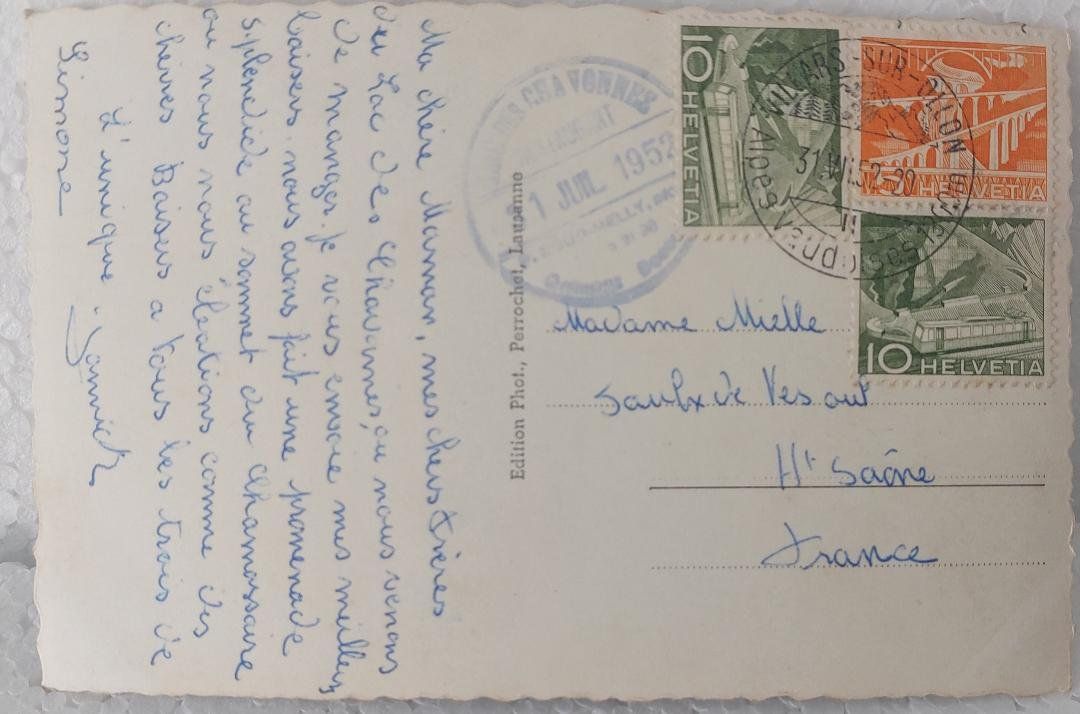 Ma chère Maman, mes chers frères
du Lac des Chavonnes, où nous venons
de manger je vous envoie mes meilleurs
baisers. nous avons fait une promenade
splendide au sommet du Chamossaire
où nous nous, étations comme des
chèvres Baisers a tous les trois de
L'unique. Yannick
Simone
Edition Phot., Perrochet, Lausanne
CHAVONNES
1 JUIL. 1952
10 HELVETIA
VILLARS-SUR-OLLON
(Alpes Vaud)
5 HELVETIA
10 HELVETIA
Madame Mielle
Saulx de Vesoul
Hte Saône
France